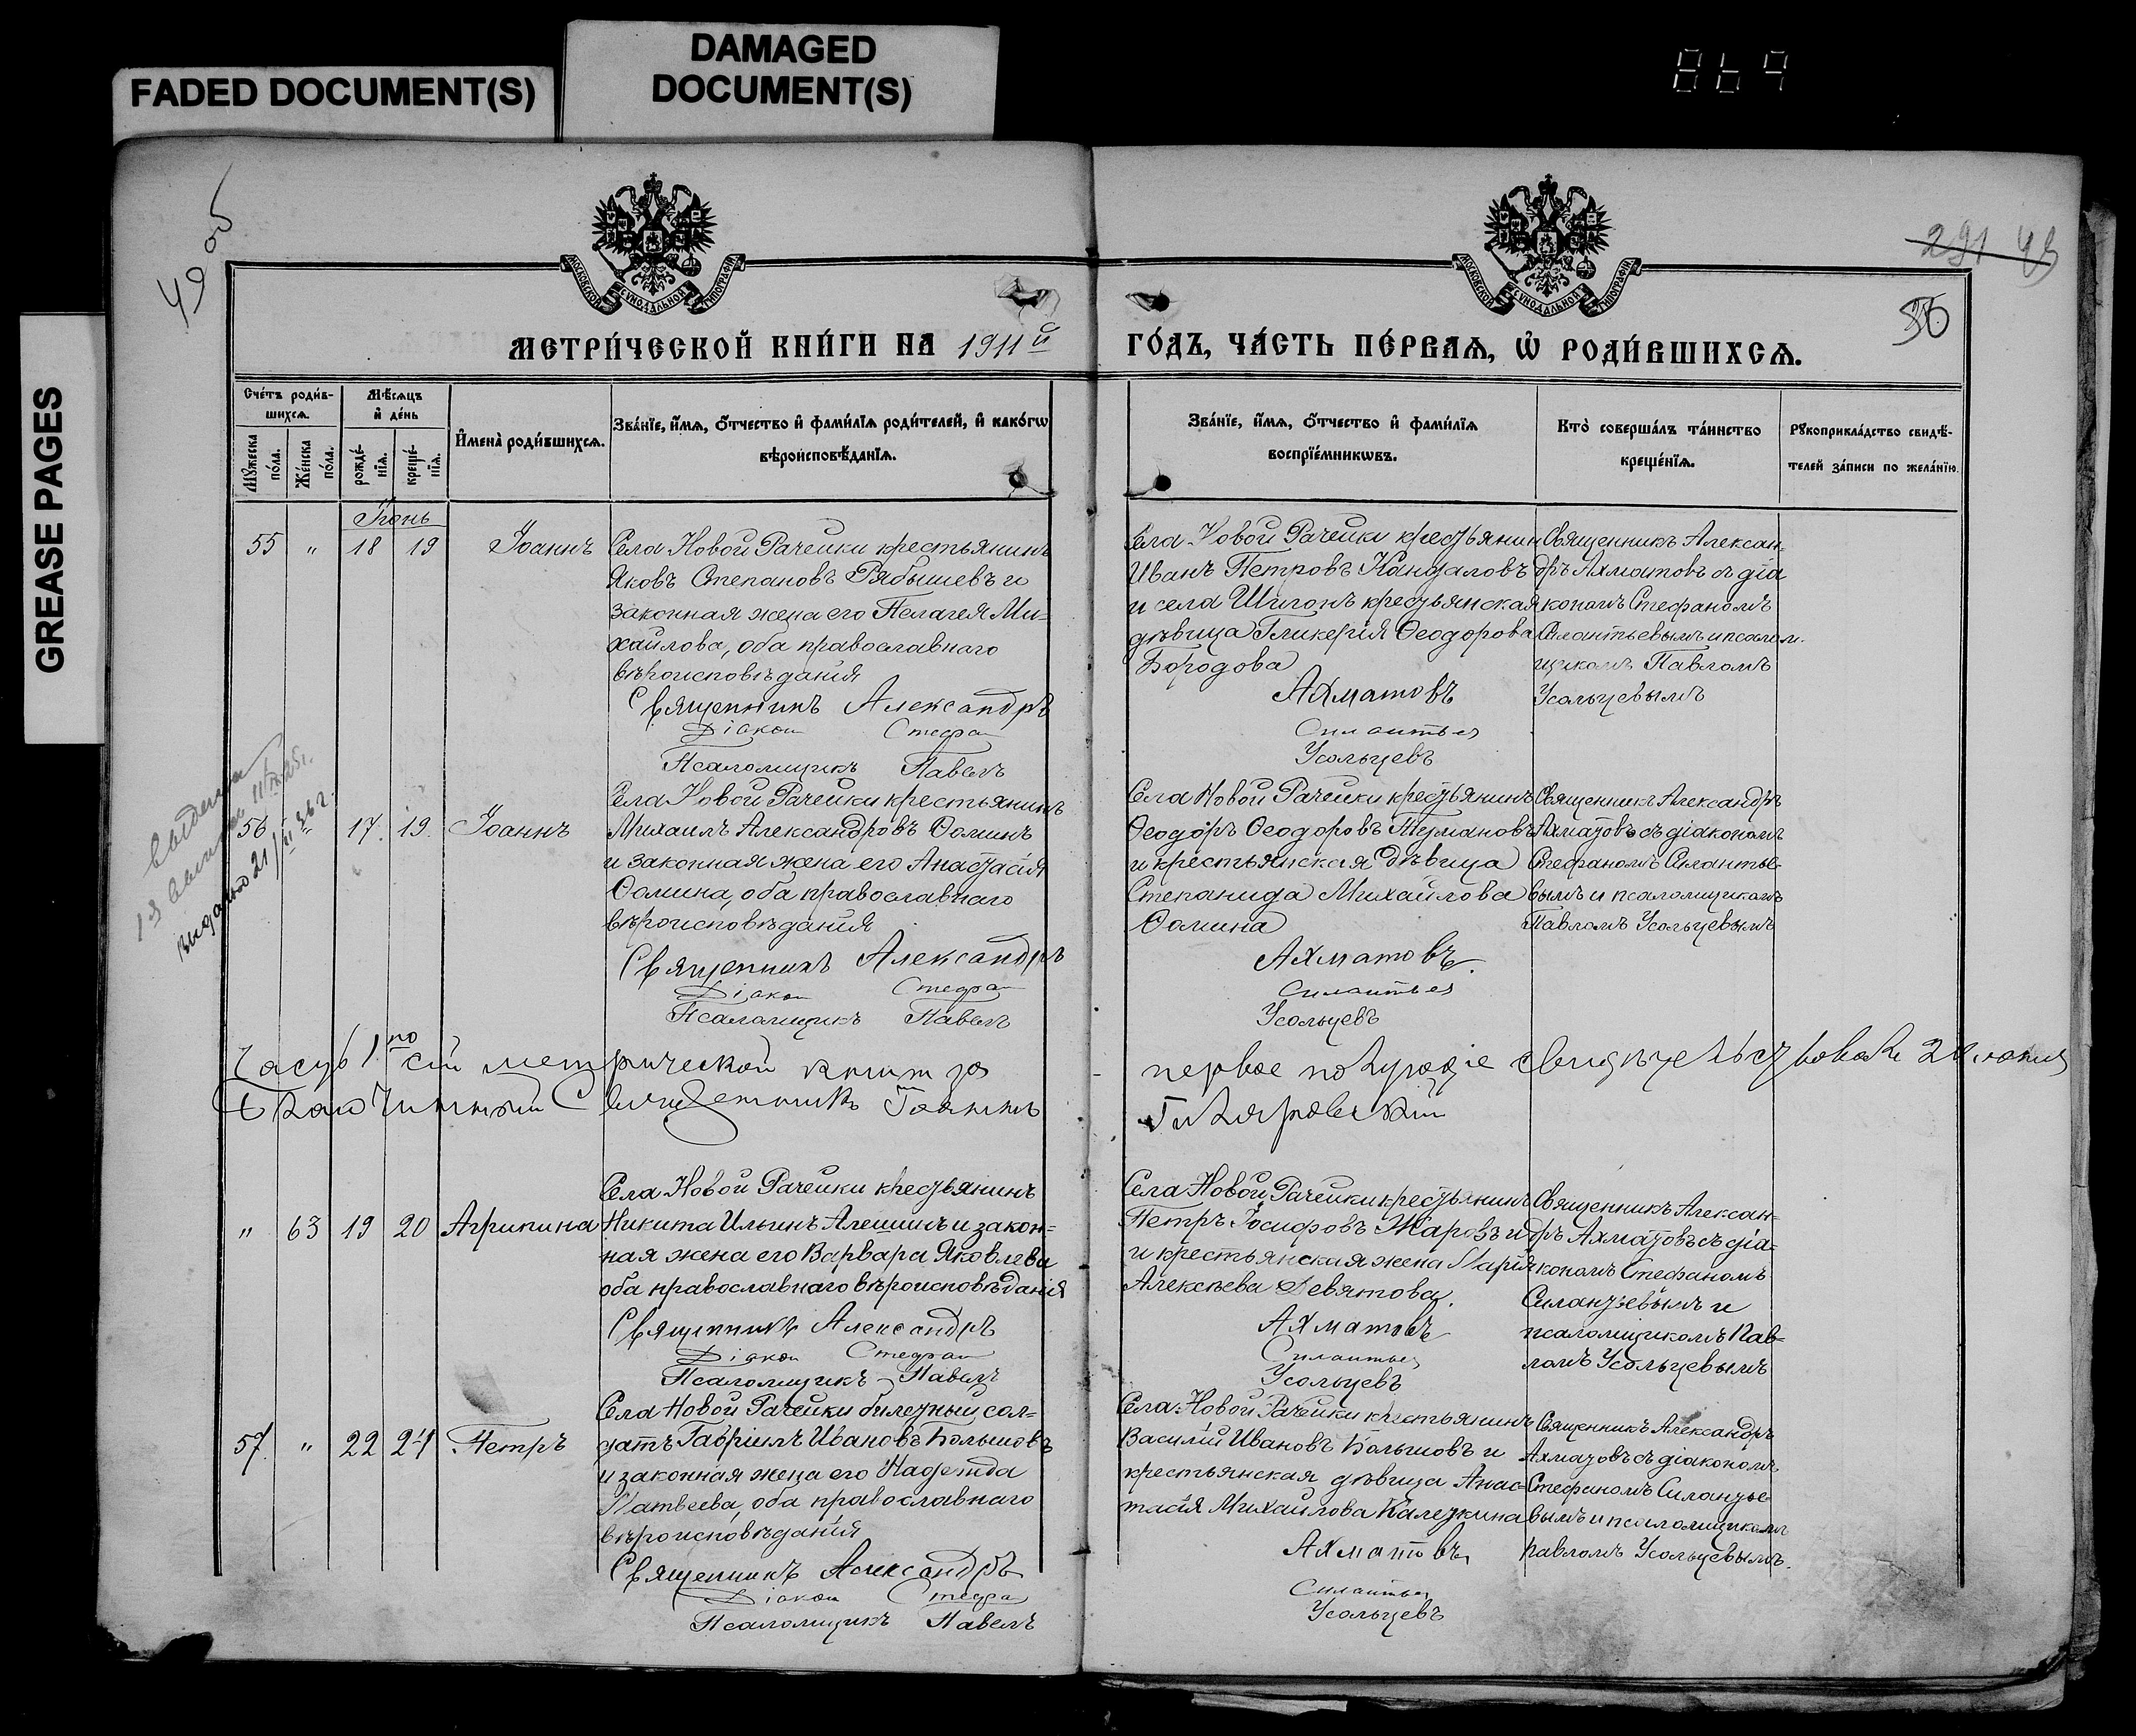 DAMAGED
DOCUMENT(S)
FADED DOCUMENT(S)
GREASE PAGES
869
49 об
291 43
56
МОСКОВСКОЙ СѴНОДАЛЬНОЙ ТИПОГРАФІИ
МОСКОВСКОЙ СѴНОДАЛЬНОЙ ТИПОГРАФІИ
МЕТРИ́ЧЕСКОЙ КНИ́ГИ НА 1911й
ГО́ДЪ, ЧА́СТЬ ПЕ́РВАѦ, Ѡ РОДИ́ВШИХСѦ.
Сче́тъ роди́в-
шихсѧ.
Мꙋ́жеска по́ла.
Же́нска по́ла.
Мѣ́сѧцъ
и҆ де́нь
рожде́-
нїѧ.
креще́-
нїѧ.
И҆мена̀ роди́вшихсѧ.
Зва́нїе, и҆́мѧ, ѻ҆́тчество и҆ фами́лїѧ роди́телей, и҆ како́гѡ
вѣроисповѣ́данїѧ.
Зва́нїе, и҆́мѧ, ѻ҆́тчество и҆ фами́лїѧ
воспрїе́мникѡвъ.
Кто̀ соверша́лъ та́инство
креще́нїѧ.
Рꙋкоприкла́дство свидѣ́-
телей за́писи по жела́нїю.
Іюнь
55 " 18 19 Іоаннъ
Села Новой Рачейки крестьянинъ
Яковъ Степановъ Рябышевъ и
законная жена его Пелагея Ми-
хайлова, оба православнаго
вѣроисповѣданія
Священникъ Александръ
Діакон Стефан
Псаломщикъ Павелъ
Села Новой Рачейки крестьянин
Иванъ Петровъ Кандаловъ
и села Шигонъ крестьянская
дѣвица Гликерія Ѳеодорова
Бородова
Ахматовъ
Силантьев
Усольцевъ
Священникъ Алексан-
дръ Ахматовъ съ діа
кономъ Стефаномъ
Силантьевымъ и псалом-
щикомъ Павломъ
Усольцевымъ
56 " 17. 19. Іоаннъ
Села Новой Рачейки крестьянинъ
Михаилъ Александровъ Ѳоминъ
и законная жена его Анастасія
Ѳомина, оба православнаго
вѣроисповѣданія
Священникъ Александръ
Діакон Стефан
Псаломщикъ Павелъ
Села Новой Рачейки крестьянинъ
Ѳеодоръ Ѳеодоровъ Тумановъ
и крестьянская дѣвица
Степанида Михайлова
Ѳомина
Ахматовъ.
Силантьев
Усольцевъ
Священникъ Александръ
Ахматовъ съ діакономъ
Стефаномъ Силантье-
вымъ и псаломщикомъ
Павломъ Усольцевымъ
Часть 1ю сей метрической книги за первое полугодіе свидѣтельствовалъ
Благочинный Священникъ Іоаннъ Гиляровскій
" 63 19 20 Агрипина
Села Новой Рачейки крестьянинъ
Никита Ильинъ Алешинъ и закон-
ная жена его Варвара Яковлева
оба православнаго вѣроисповѣданія
Священникъ Александръ
Діакон Стефан
Псаломщикъ Павелъ
Села Новой Рачейки крестьянинъ
Петръ Іосифовъ Жаровъ и
и крестьянская жена Марія
Алексѣева Девятова.
Ахматовъ
Силантьев
Усольцевъ
Священникъ Алексан-
дръ Ахматовъ съ діа-
кономъ Стефаномъ
Силантьевымъ и
псаломщикомъ Пав-
ломъ Усольцевымъ
57. " 22 24 Петръ
Села Новой Рачейки билетный сол-
датъ Гавріилъ Ивановъ Большовъ
и законная жена его Надежда
Матвеева, оба православнаго
вѣроисповѣданія
Священникъ Александръ
Діакон Стефа
Псаломщикъ Павелъ
Села Новой Рачейки крестьянинъ
Василій Ивановъ Большовъ и
крестьянская дѣвица Анас-
тасія Михайлова Калеткина
Ахматовъ
Силантьев
Усольцевъ
Священникъ Александръ
Ахматовъ съ діакономъ
Стефаномъ Силантье-
вымъ и псаломщикомъ
Павломъ Усольцевымъ.